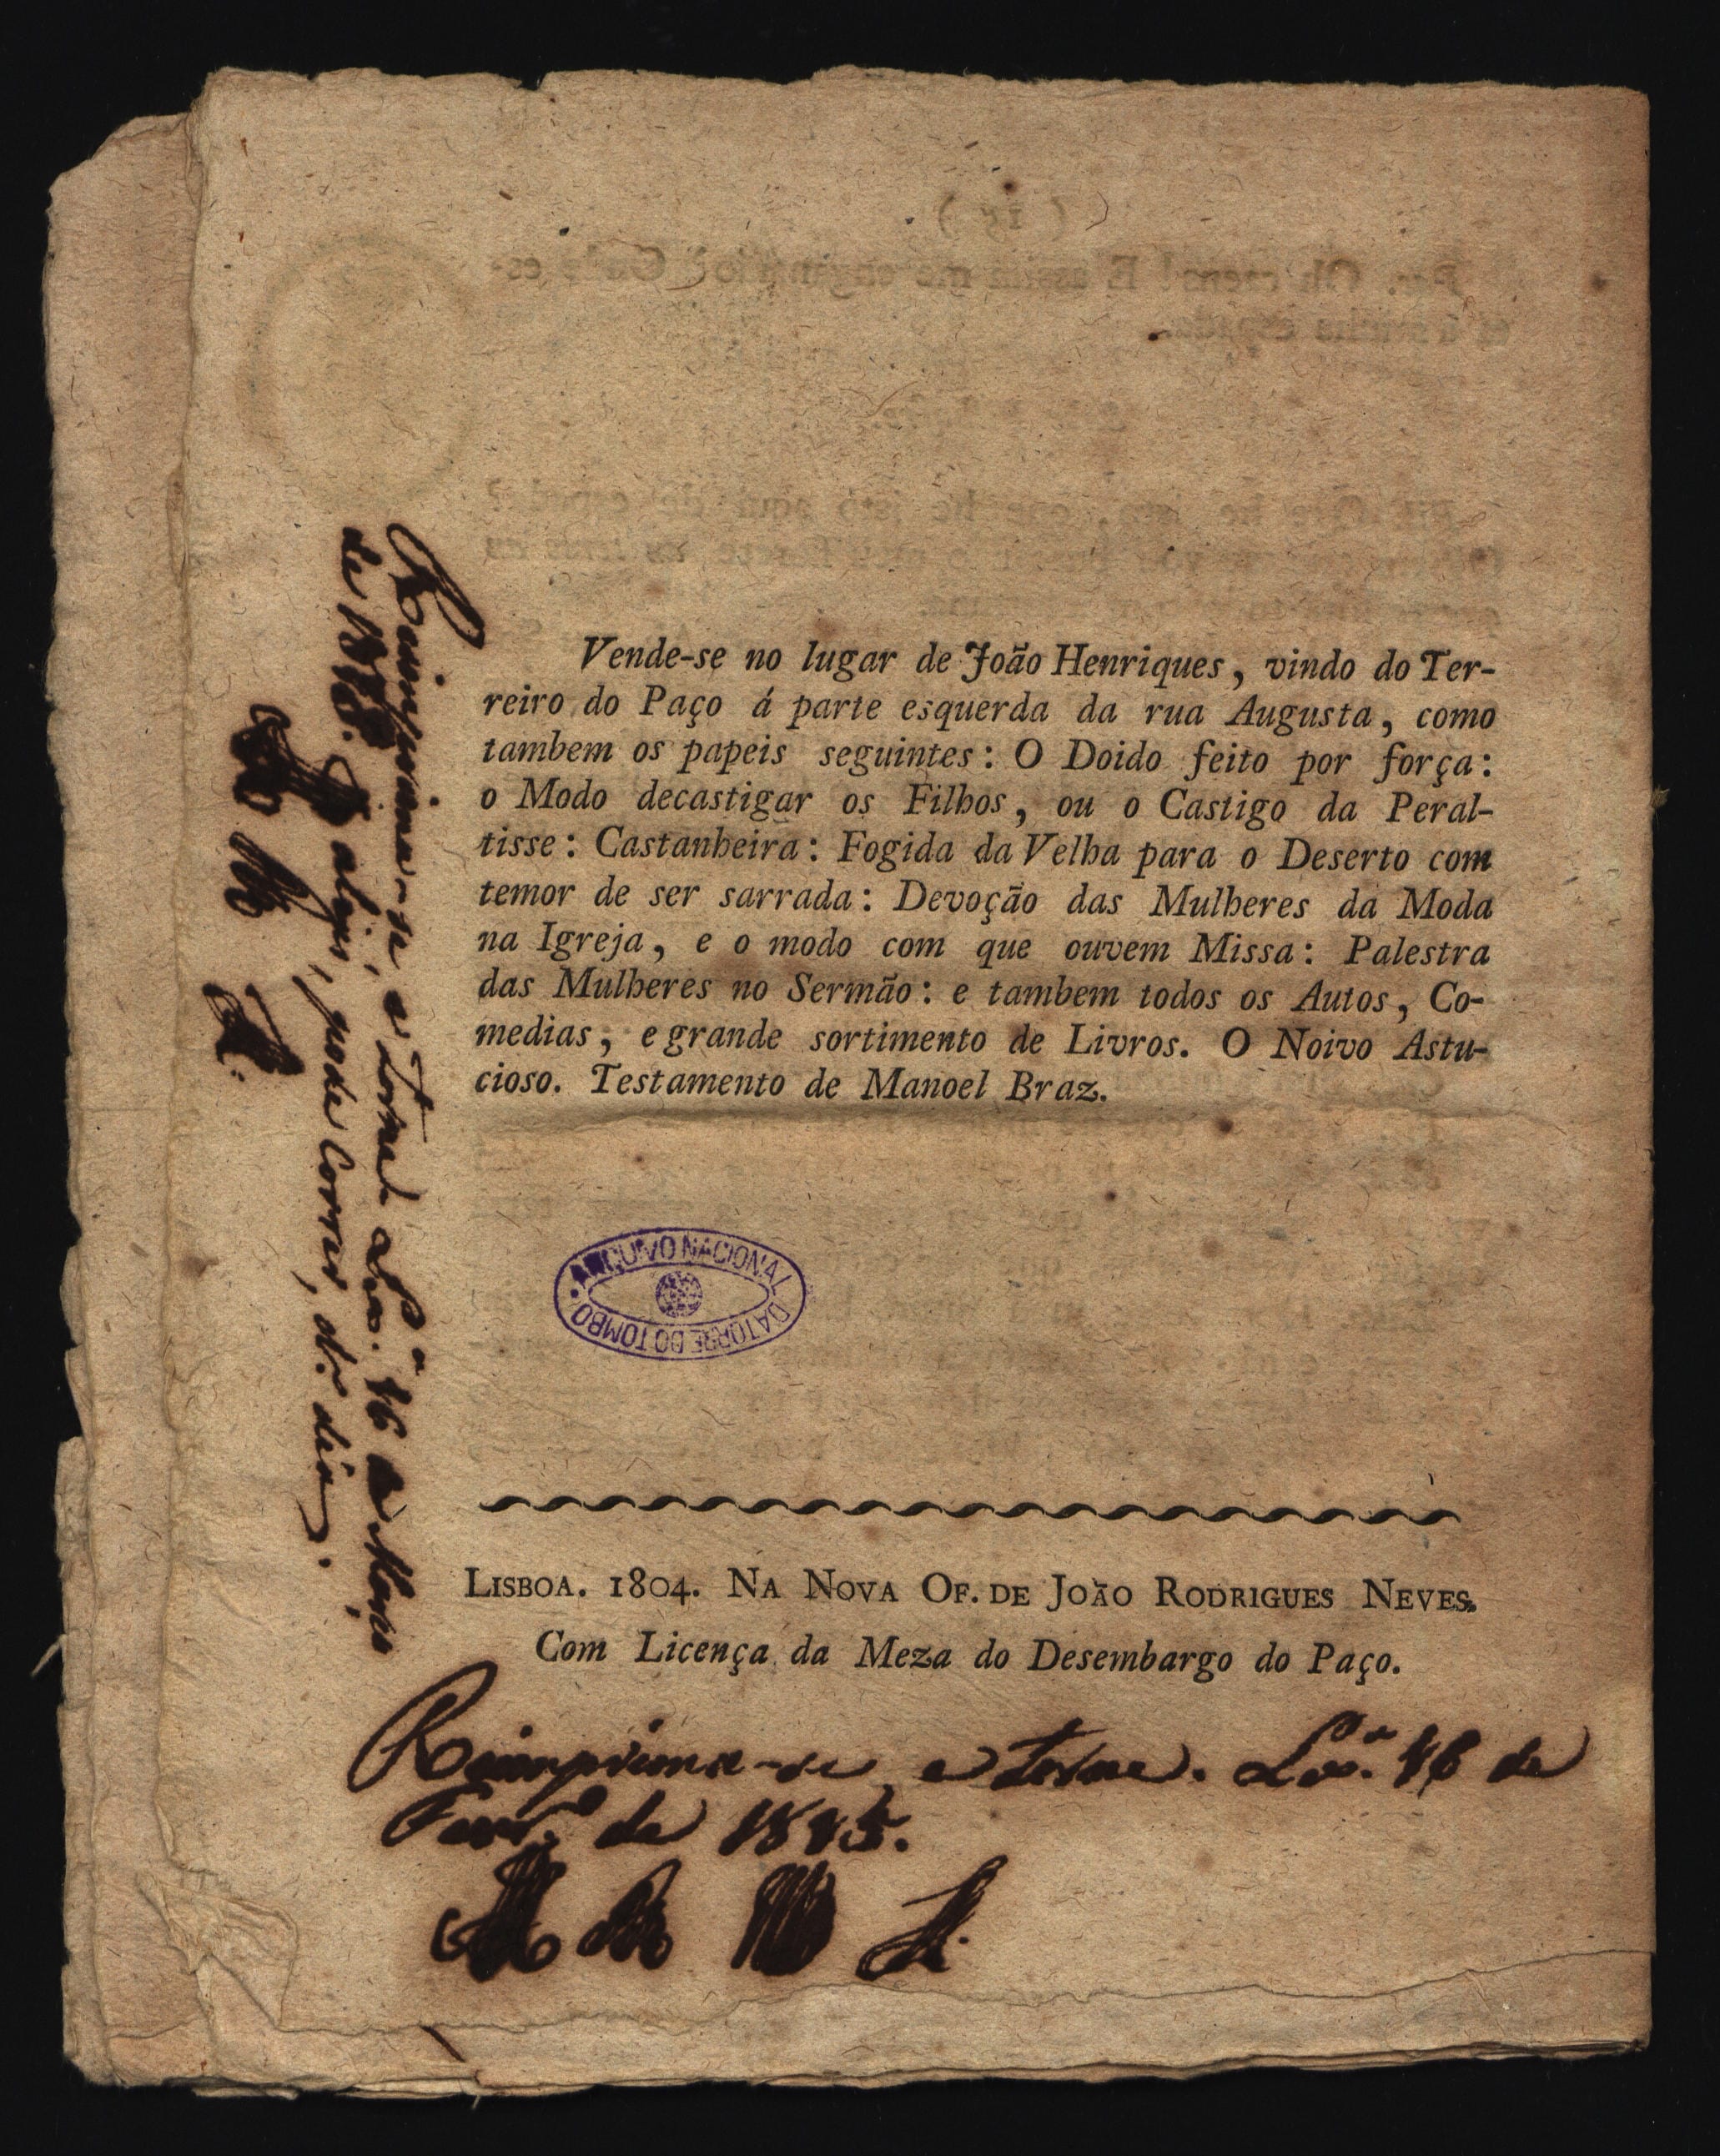 Vende-se no lugar de João Henriques, vindo do Ter-
reiro do Paço á parte esquerda da rua Augusta, como
tambem os papeis seguintes: O Doido feito por força:
o Modo decastigar os Filhos, ou o Castigo da Peral-
tisse: Castanheira: Fogida da Velha para o Deserto com
temor de ser sarrada: Devoção das Mulheres da Moda
na Igreja, e o modo com que ouvem Missa: Palestra
das Mulheres no Sermão: e tambem todos os Autos, Co-
medias, e grande sortimento de Livros. O Noivo Astu-
cioso. Testamento de Manoel Braz.
ARQUIVO NACIONAL DA TORRE DO TOMBO
LISBOA. 1804. NA NOVA OF. DE JOÃO RODRIGUES NEVES.
Com Licença da Meza do Desembargo do Paço.
Reimprima-se, e torne. Lxª. 16 de
Fevrº de 1815.
Reimprima-se, e torne Lxª. 16 de
de pode correr,